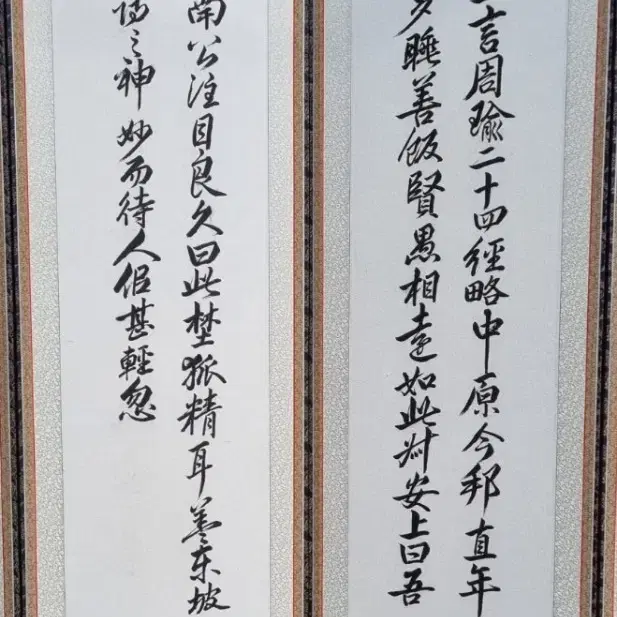 言周瑜二十四經略中原今邦直年
多睡善飯賢愚相遠如此叔安上曰吾
南公注目良久曰此埜狐精耳蓋東坡
之神妙而待人佀甚輕忽